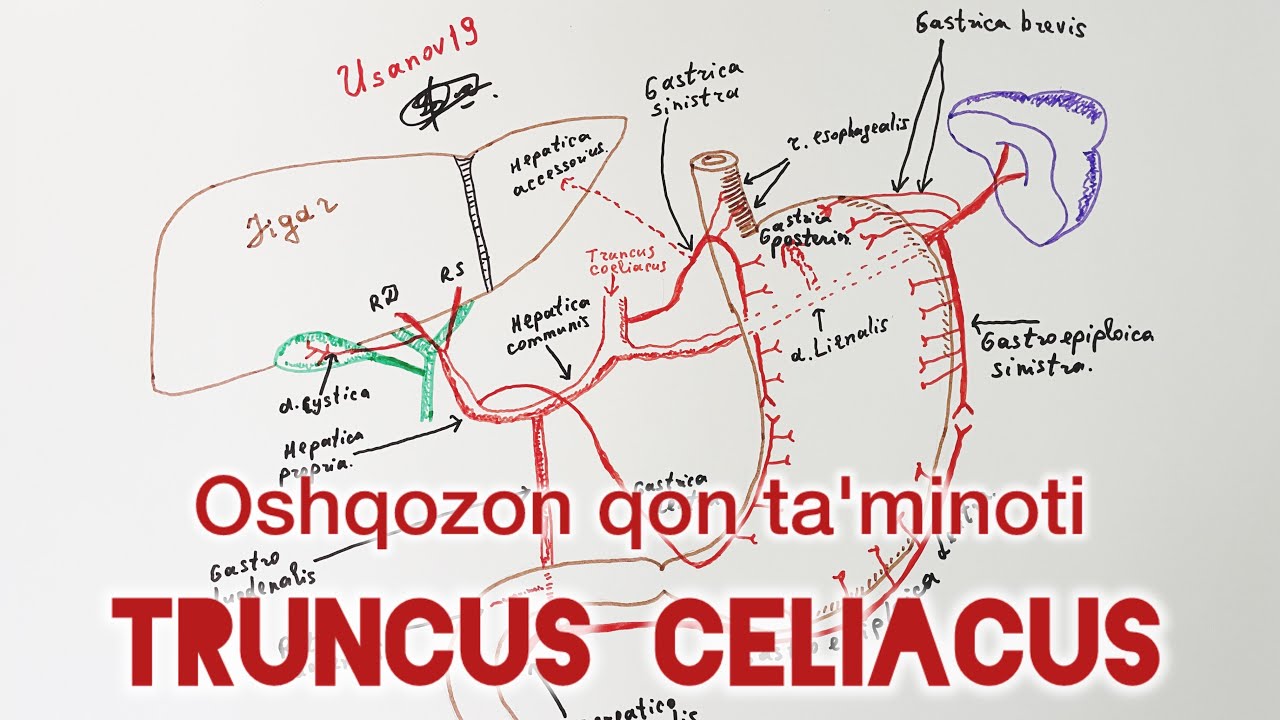 Gastrica brevis
Usanov19
Gastrica
sinistra
r. esophagealis
Hepatica
accessorius.
Jigar
Gastrica
posterior.
Truncus
coeliacus
RS
RD
Hepatica
communis
a. Lienalis
Gastroepiploica
sinistra.
a. Cystica
Hepatica
propria.
Gastrica
Oshqozon qon ta'minoti
Gastro
TRUNCUS CELIACUS